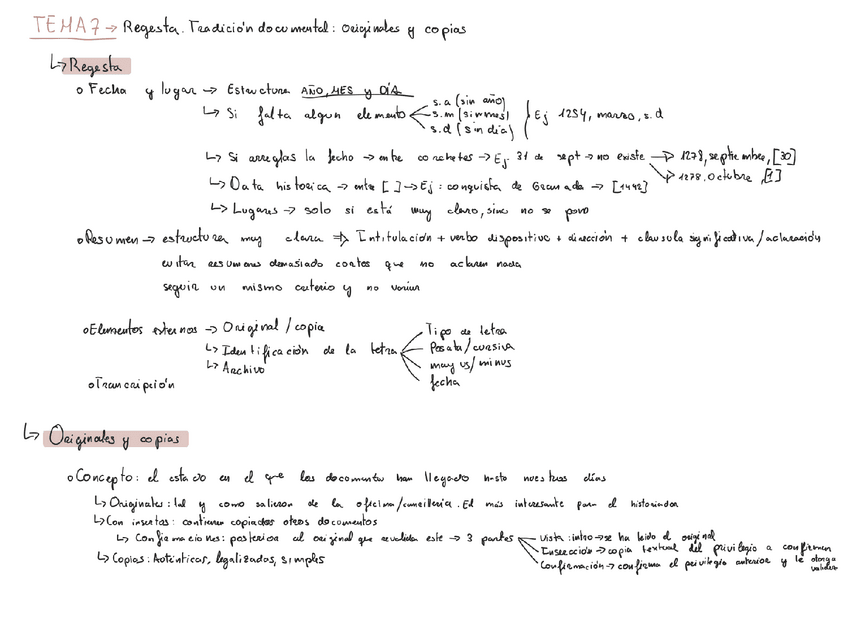 TEMA 7 → Regesta. Tradición documental: originales y copias
↳ Regesta
o Fecha y lugar → Estructura AÑO, MES y DÍA
↳ Si falta algun elemento
s.a (sin año)
s.m (sin mes)
s.d (sin día)
Ej 1254, marzo, s.d
↳ Si arreglas la fecha → entre corchetes → Ej. 31 de sept → no existe → 1278, septiembre, [30]
→ 1278, Octubre, [1]
↳ Data historica → entre [ ] → Ej: conquista de Granada → [1492]
↳ Lugares → solo si está muy claro, sino no se pone
o Resumen → estructura muy clara ⇒ Intitulación + verbo dispositivo + dirección + clausula significativa/aclaración
evitar resumenes demasiado cortos que no aclaren nada
seguir un mismo criterio y no variar
o Elementos externos → Original / copia
↳ Identificación de la letra
Tipo de letra
Posata/cursiva
mayus/minus
fecha
↳ Archivo
o Transcripción
↳ Originales y copias
o Concepto: el estado en el que los documentos han llegado hasta nuestros días
↳ Originales: tal y como salieron de la oficina/cancilleria. El más interesante para el historiador
↳ Con insertos: contienen copiados otros documentos
↳ Confirmaciones: posterior al original que revalida este → 3 partes
Vista: intro → se ha leido el original
Inserción → copia textual del privilegio a confirmar
Confirmación → confirma el privilegio anterior y le otorga validez
↳ Copias: Autenticas, legalizadas, simples